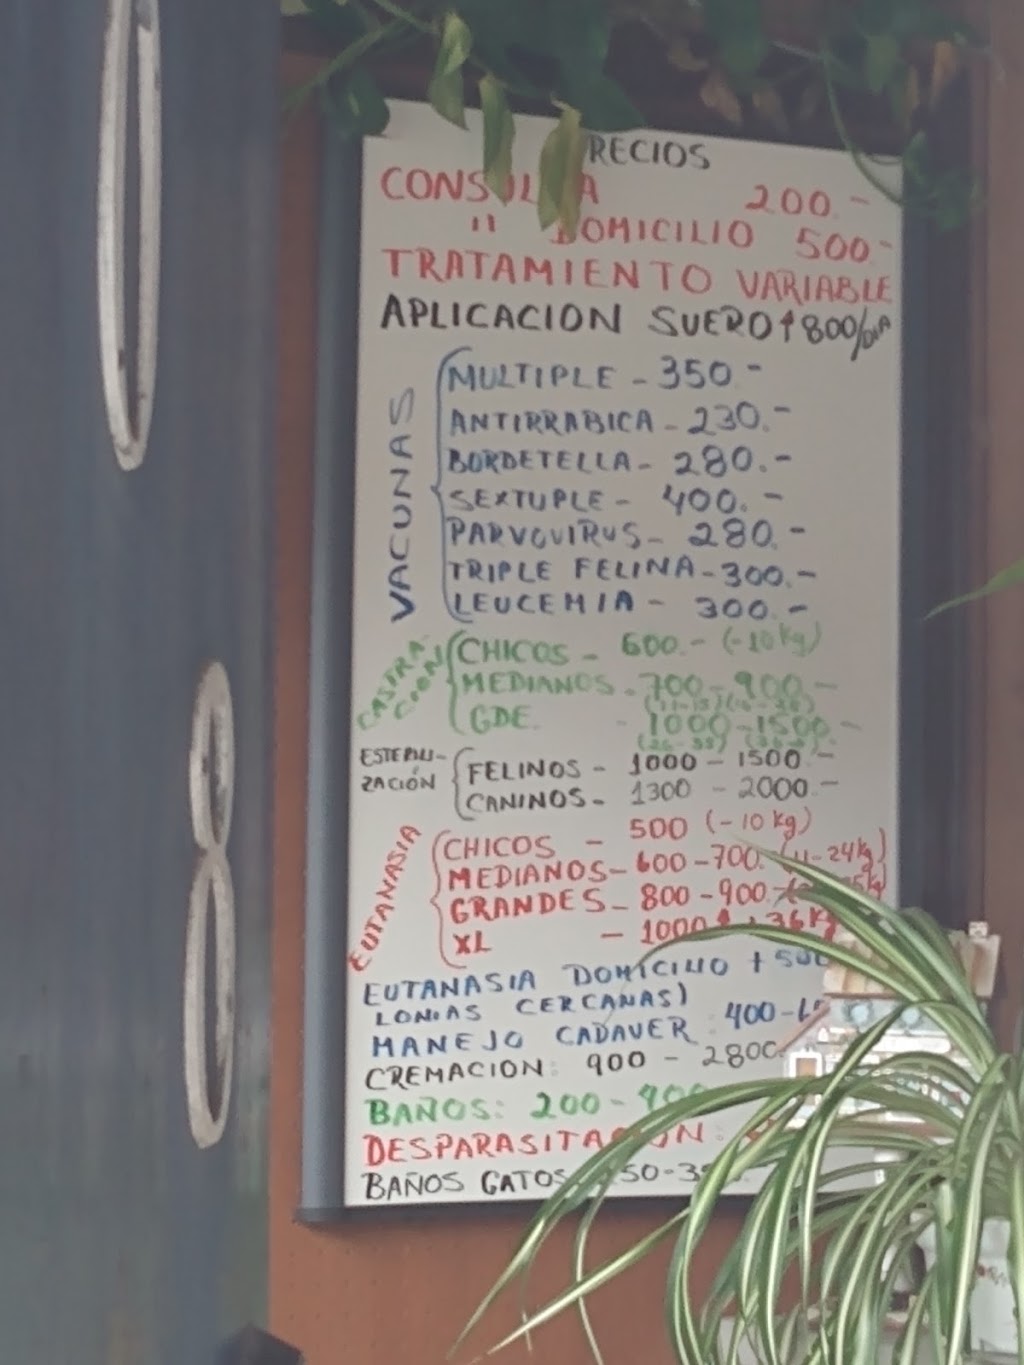 RECIOS
CONSULTA 200.-
" DOMICILIO 500-
TRATAMIENTO VARIABLE
APLICACION SUERO ↑ 800/DIA
VACUNAS
MULTIPLE - 350.-
ANTIRRABICA - 230.-
BORDETELLA - 280.-
SEXTUPLE - 400.-
PARVOVIRUS - 280.-
TRIPLE FELINA - 300.-
LEUCEMIA - 300.-
CASTRA-
CION
CHICOS - 600.- (-10kg)
MEDIANOS - 700-900.-
GDE. - 1000-1500.-
ESTERILI-
ZACIÓN
FELINOS - 1000-1500.-
CANINOS - 1300-2000.-
EUTANASIA
CHICOS - 500 (-10kg)
MEDIANOS - 600-700. (11-24kg)
GRANDES - 800-900.-
XL - 1000 ↑ +36kg
EUTANASIA DOMICILIO +
LONIAS CERCANAS)
MANEJO CADAVER 400-
CREMACION: 900 - 2800.
BAÑOS: 200-900
DESPARASITACION:
BAÑOS GATOS